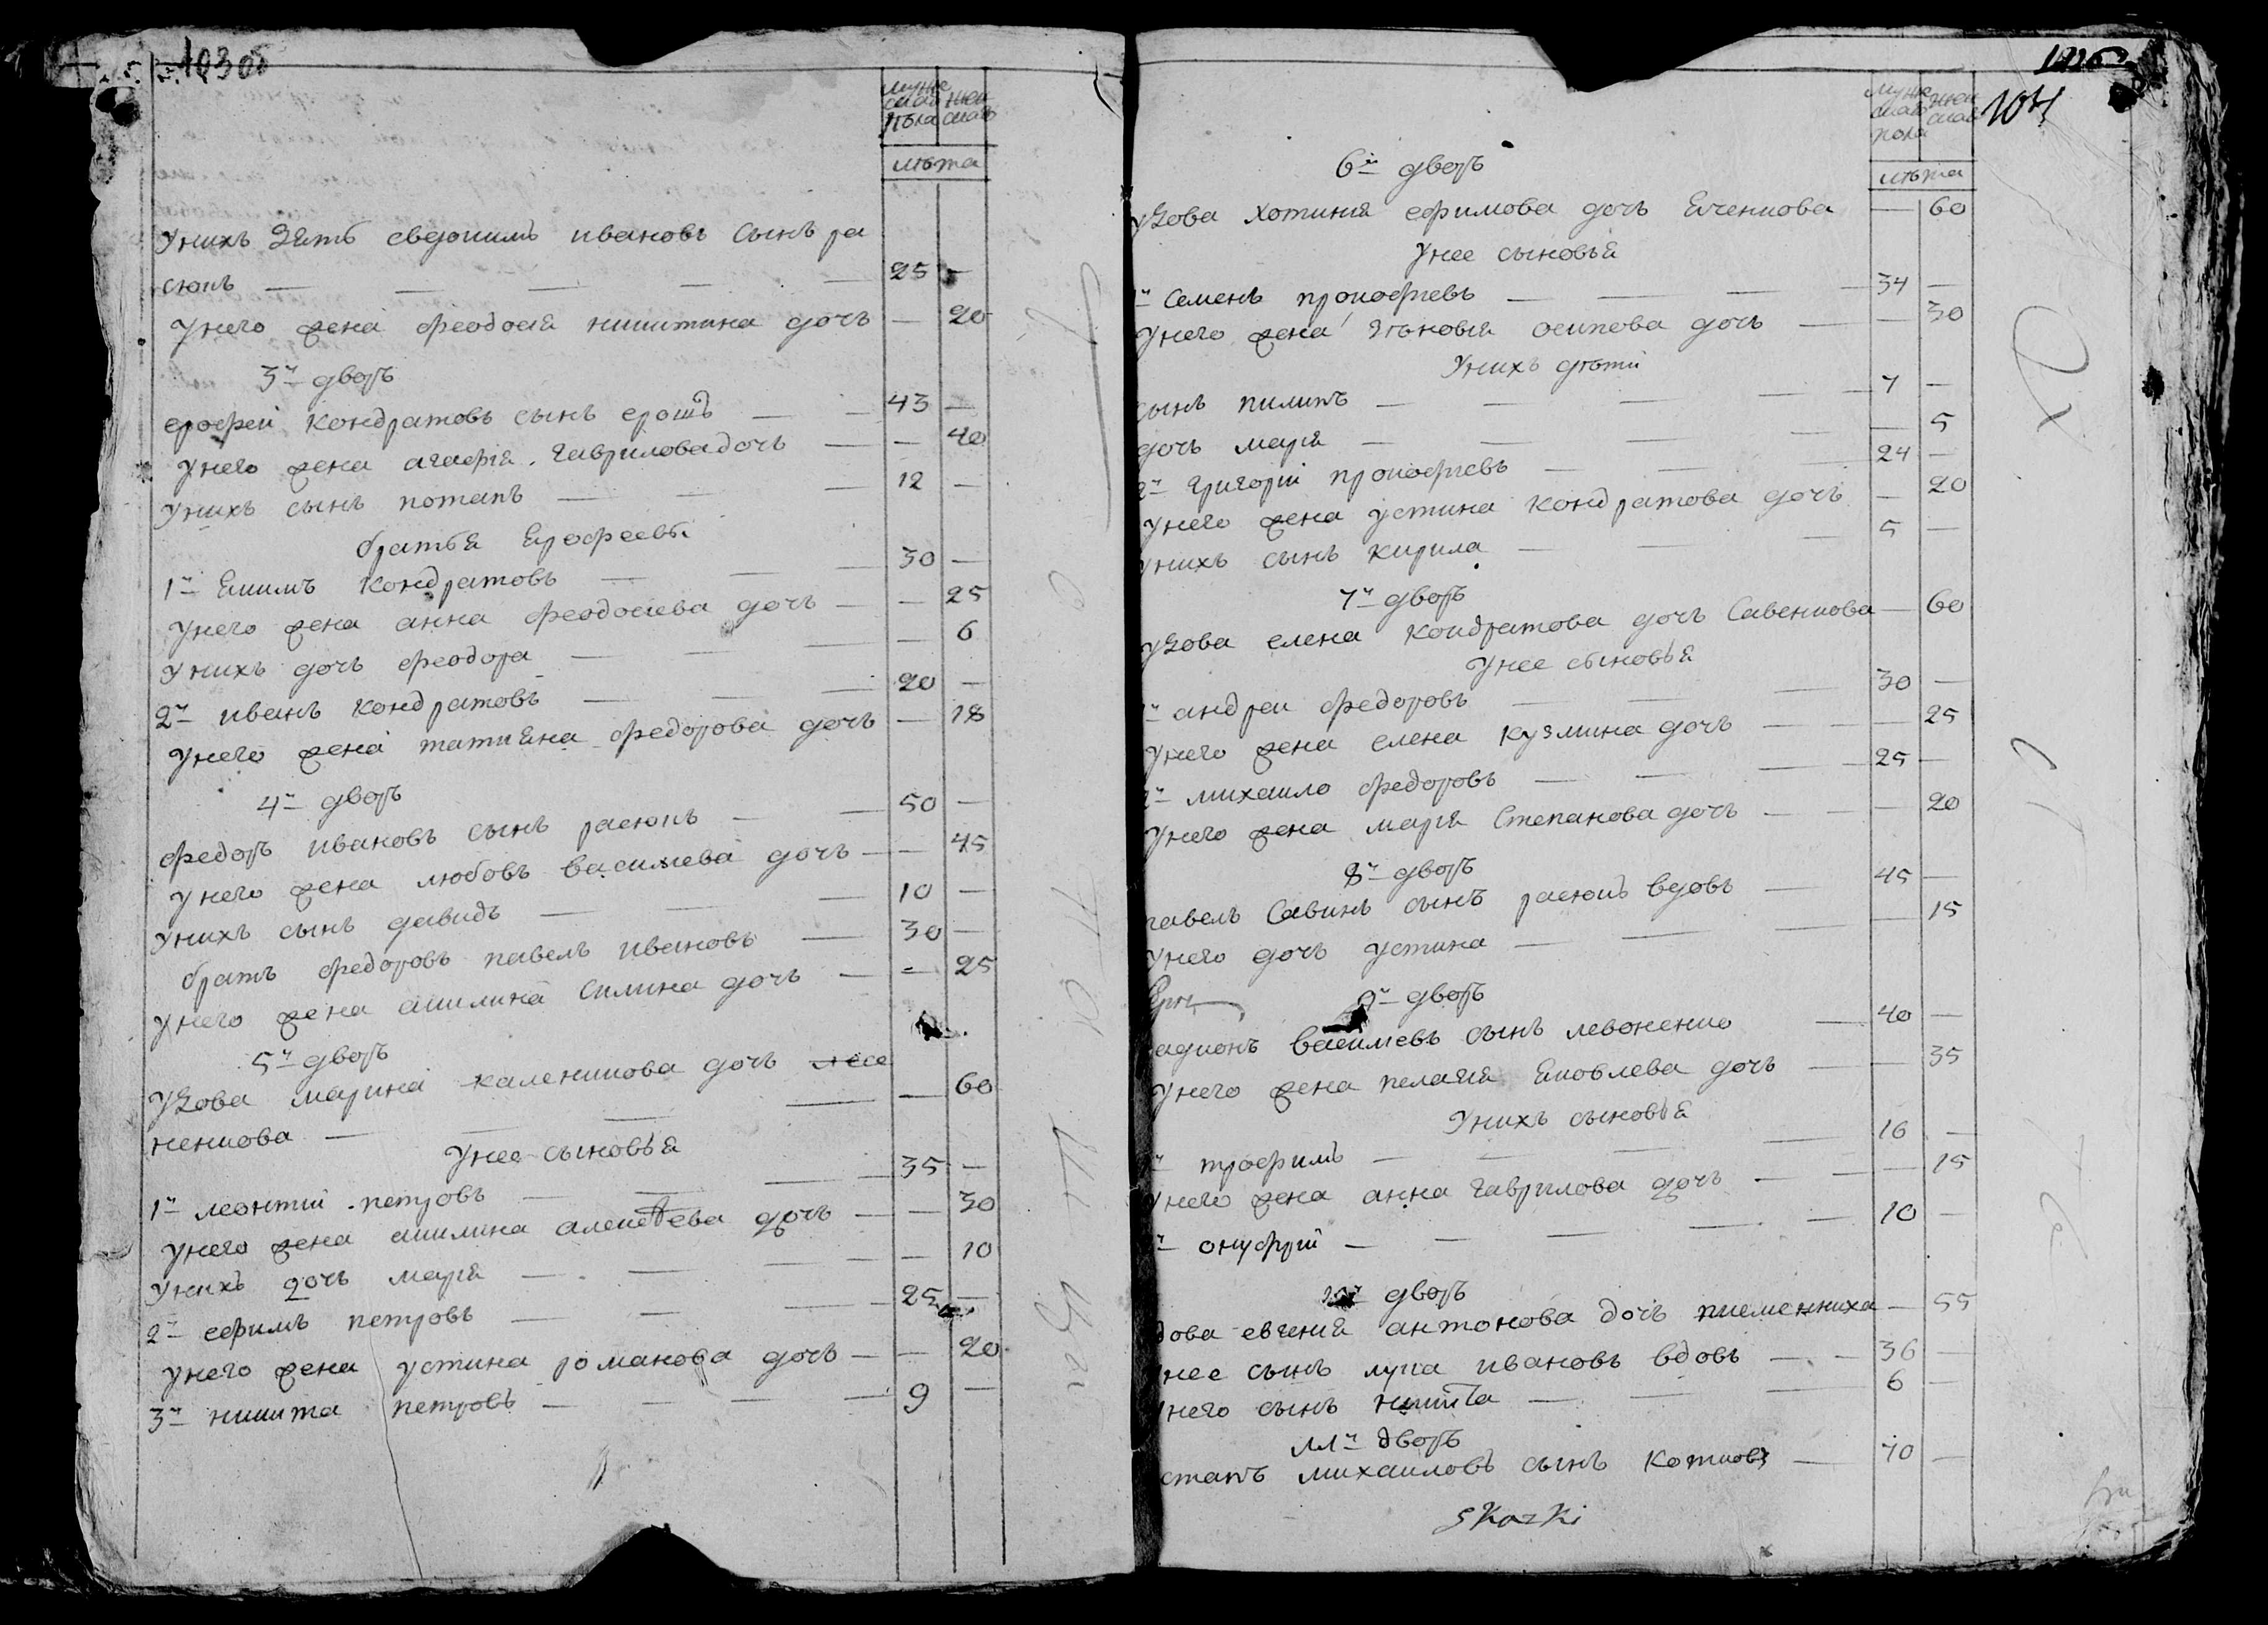 103об
мужеска пола женска
лѣта
У нихъ зять евдокимъ ивановъ сынъ ра
сюкъ — — — — — 25 —
У него жена феодосія никитина дочь — 20
3й дворъ
ерофей кондратовъ сынъ ерошъ — — 43 —
У него жена агафія гаврилова дочь — — 40
У нихъ сынъ потапъ — — — 12 —
братья Ерофеевы
1й Екимъ кондратовъ — — — 30 —
У него жена анна феодосиева дочь — — 25
У нихъ дочь феодора — — — — 6
2й иванъ кондратовъ — — — 20 —
У него жена татияна федорова дочь — 18
4й дворъ
федоръ ивановъ сынъ расюкъ — — 50 —
У него жена любовъ василиева дочь — — 45
У нихъ сынъ давидъ — — — 10 —
братъ федоровъ павелъ ивановъ — 30 —
У него жена акилина силина дочь — = 25
5й дворъ
Удова марина каленикова дочь
ненкова — — — — — 60
У нее сыновья
1й леонтий петровъ — — — 35 —
У него жена акилина алексѣева дочь — — 30
У нихъ дочь марія — — — — 10
2й ефимъ петровъ — — — 25 —
У него жена устина романова дочь — — 20
3й никита петровъ — — — — 9 —
104
мужеска пола женска
лѣта
6й дворъ
удова хотиния ефимова дочь Еченкова — 60
У нее сыновья
й Семенъ прокофиевъ — — — 34 —
У него жена зѣновія осипова дочь — — 30
У нихъ дѣти
сынъ пилипъ — — — — 7 —
дочь марія — — — — 5
2й григорій прокофиевъ — — — 24 —
У него жена устина кондратова дочь — 20
У нихъ сынъ кирила — — — 5 —
7й дворъ
удова елена кондратова дочь Савенкова — 60
У нее сыновья
й андреи федоровъ — — — 30 —
У него жена елена кузмина дочь — — 25
2й михаило федоровъ — — — 25 —
У него жена марія Степанова дочь — — — 20
8й дворъ
павелъ Савинъ сынъ расюкъ вдовъ — 45 —
У него дочь устина — — — — 15
9й дворъ
адионъ василиевъ сынъ левоненко — 40 —
У него жена пелагія Яковлева дочь — — 35
У нихъ сыновья
й трофимъ — — — — 16 —
У него жена анна гаврилова дочь — — — 15
й онуфрій — — — — — 10 —
10й дворъ
дова евгения антонова дочь — 55
нее сынъ лука ивановъ вдовъ — — 36 —
него сынъ никита — — — 6 —
11й дворъ
стапъ михаиловъ сынъ котковъ — 70 —
skazki